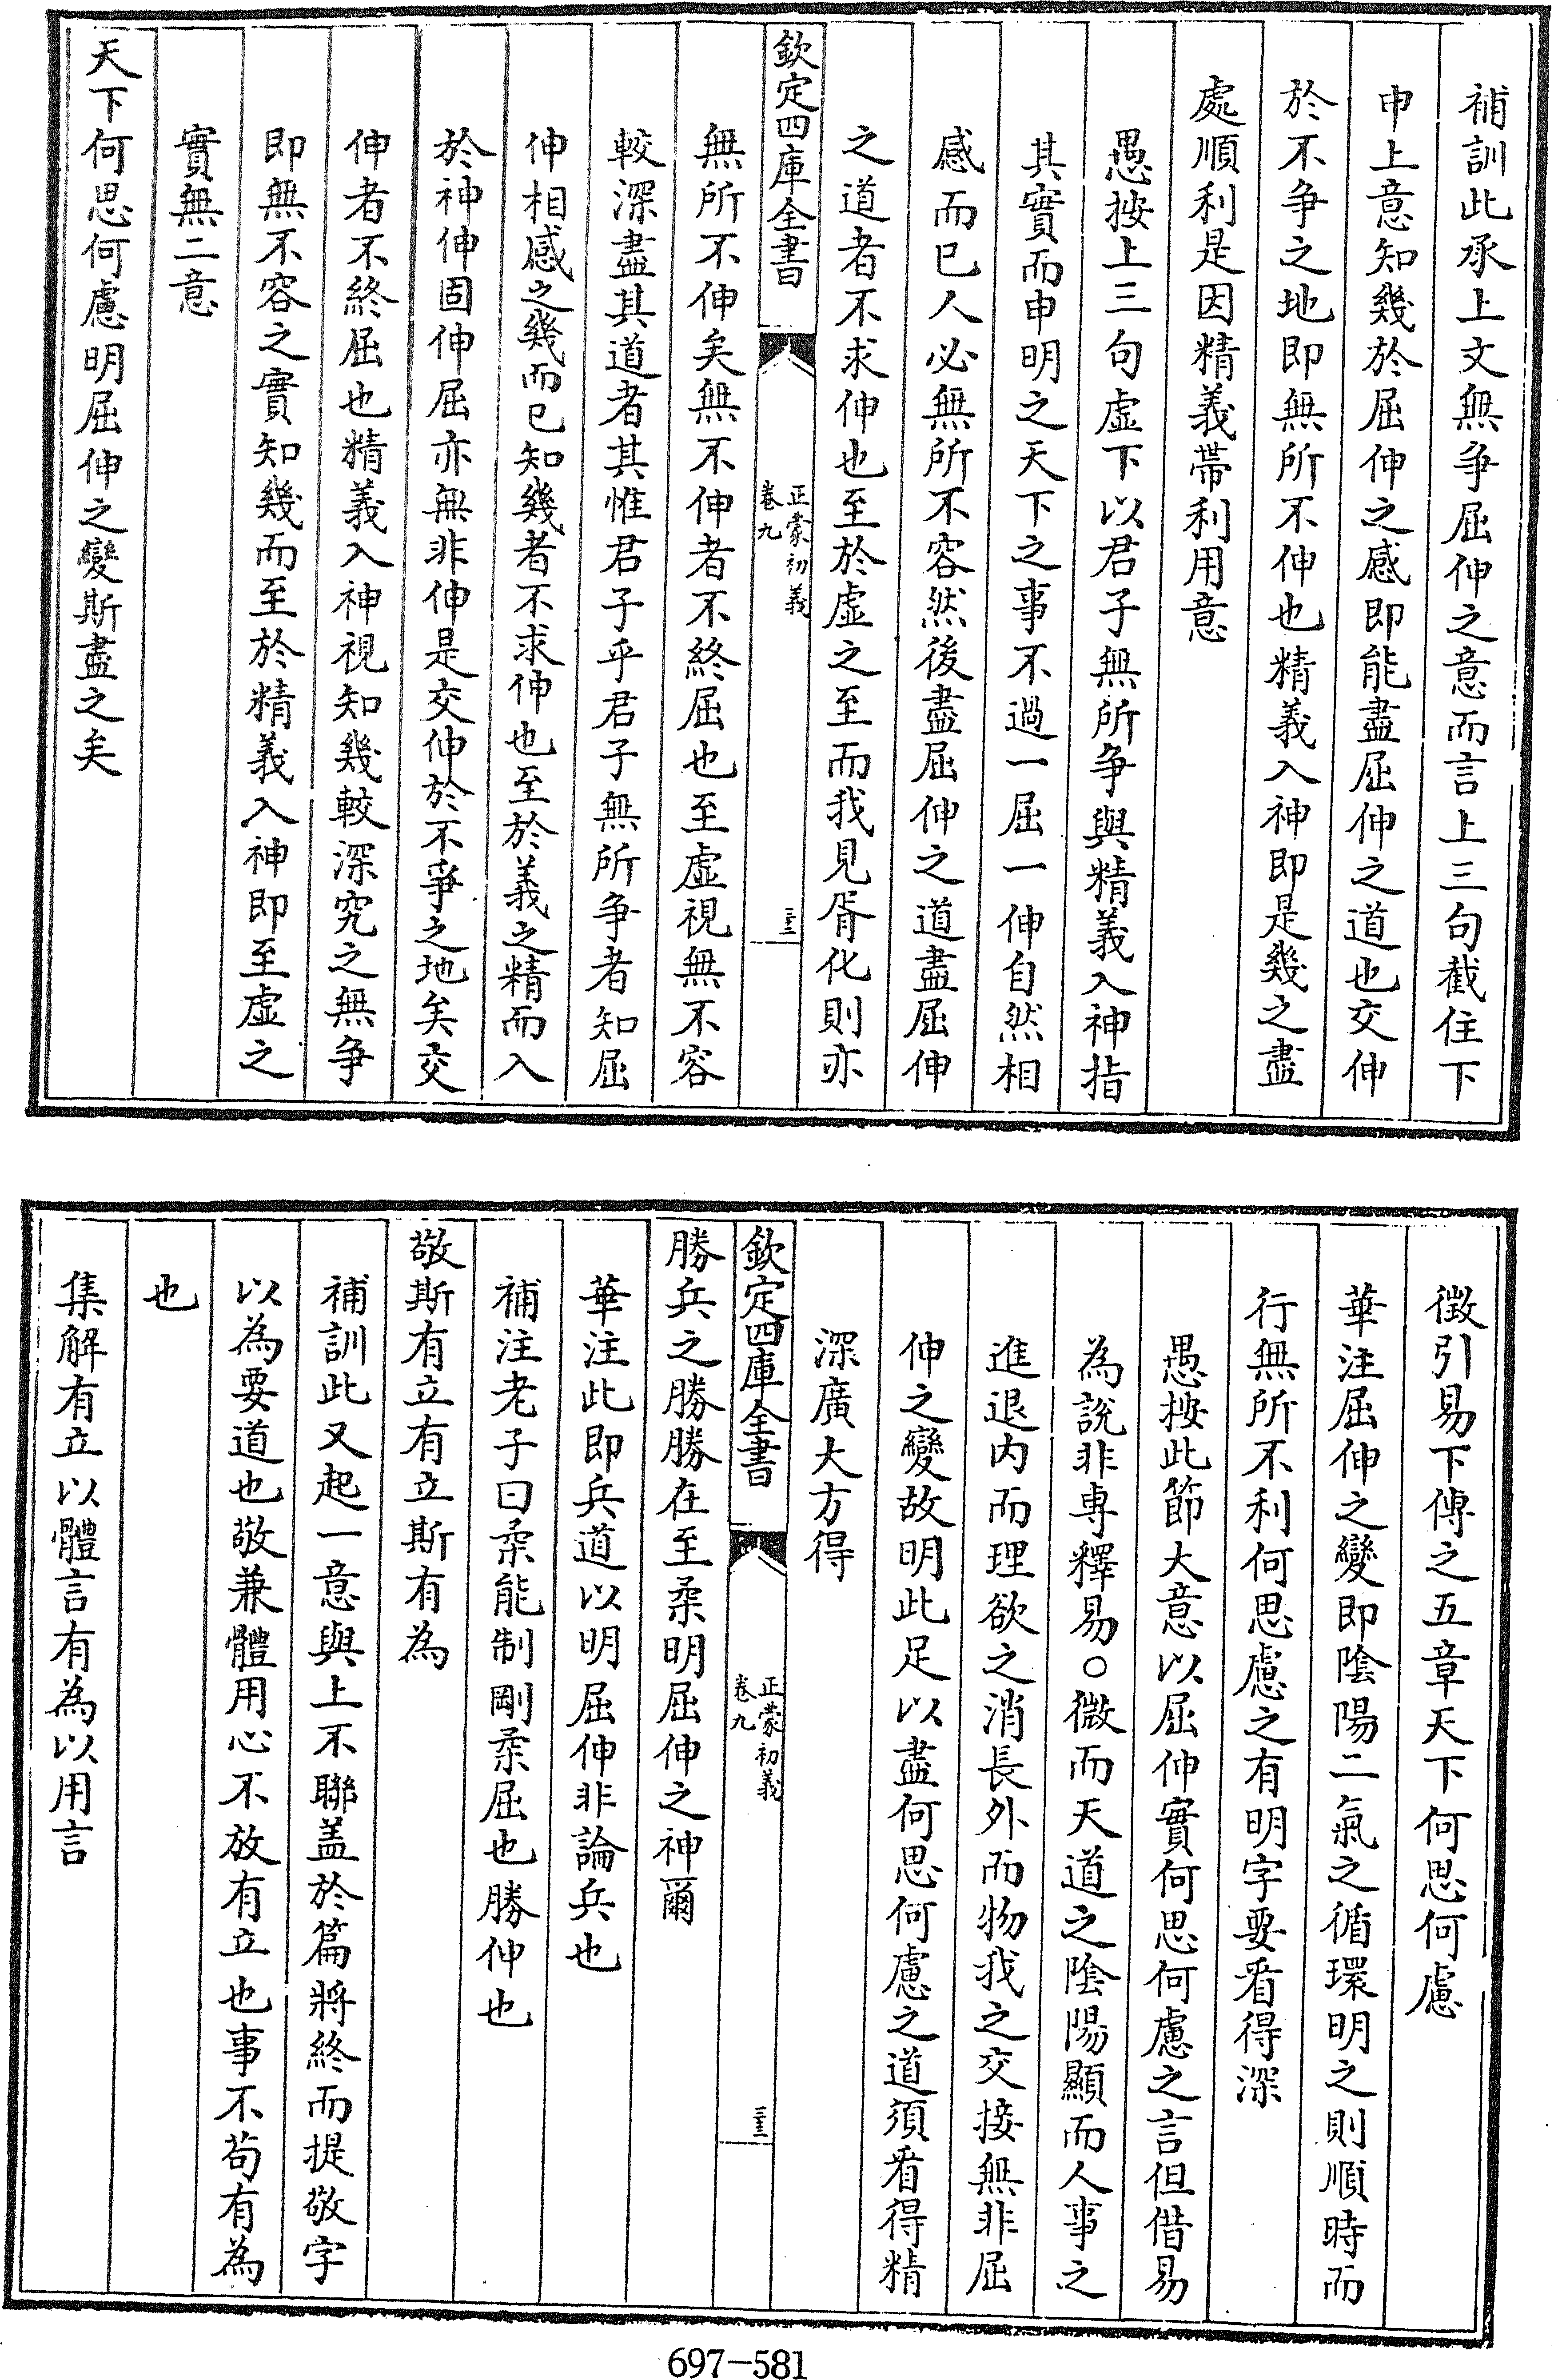 補訓此承上文無爭屈伸之意而言上三句截住下
申上意知幾於屈伸之感即能盡屈伸之道也交伸
於不爭之地即無所不伸也精義入神即是幾之盡
處順利是因精義帶利用意
愚按上三句虛下以君子無所爭與精義入神指
其實而申明之天下之事不過一屈一伸自然相
感而已人必無所不容然後盡屈伸之道盡屈伸
之道者不求伸也至於虛之至而我見胥化則亦
欽定四庫全書
正蒙初義
卷九
三十二
無所不伸矣無不伸者不終屈也至虛視無不容
較深盡其道者其惟君子乎君子無所爭者知屈
伸相感之幾而已知幾者不求伸也至於義之精而入
於神伸固伸屈亦無非伸是交伸於不爭之地矣交
伸者不終屈也精義入神視知幾較深究之無爭
即無不容之實知幾而至於精義入神即至虛之
實無二意
天下何思何慮明屈伸之變斯盡之矣
徵引易下傳之五章天下何思何慮
華注屈伸之變即陰陽二氣之循環明之則順時而
行無所不利何思慮之有明字要看得深
愚按此節大意以屈伸實何思何慮之言但借易
為說非專釋易○微而天道之陰陽顯而人事之
進退內而理欲之消長外而物我之交接無非屈
伸之變故明此足以盡何思何慮之道須看得精
深廣大方得
欽定四庫全書
正蒙初義
卷九
勝兵之勝勝在至柔明屈伸之神爾
華注此即兵道以明屈伸非論兵也
補注老子曰柔能制剛柔屈也勝伸也
敬斯有立有立斯有為
補訓此又起一意與上不聯盖於篇將終而提敬字
以為要道也敬兼體用心不放有立也事不苟有為
也
集解有立以體言有為以用言
697-581